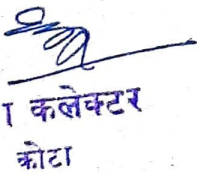 ा कलेक्टर
कोटा